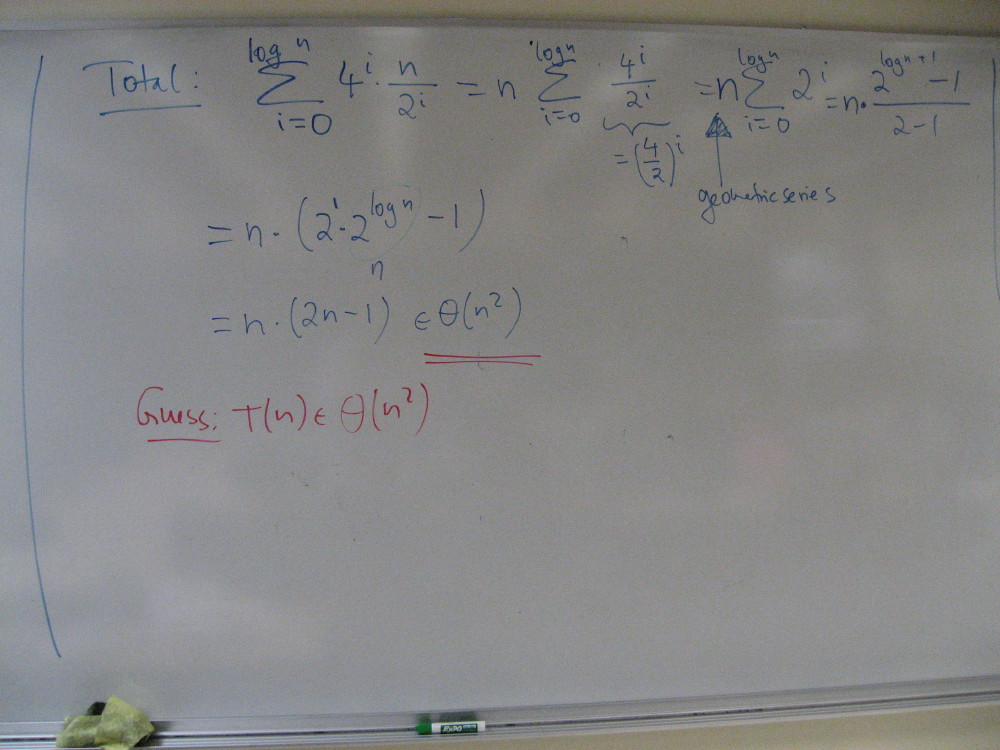 Total: \sum_{i=0}^{log n} 4^i · \frac{n}{2^i} = n \sum_{i=0}^{log n} \frac{4^i}{2^i} = n \sum_{i=0}^{log n} 2^i = n · \frac{2^{log n + 1} - 1}{2 - 1}
= (\frac{4}{2})^i
geometric series
= n · (2^1 · 2^{log n} - 1)
n
= n · (2n - 1) ∈ Θ(n^2)
Guess: T(n) ∈ Θ(n^2)
EXPO